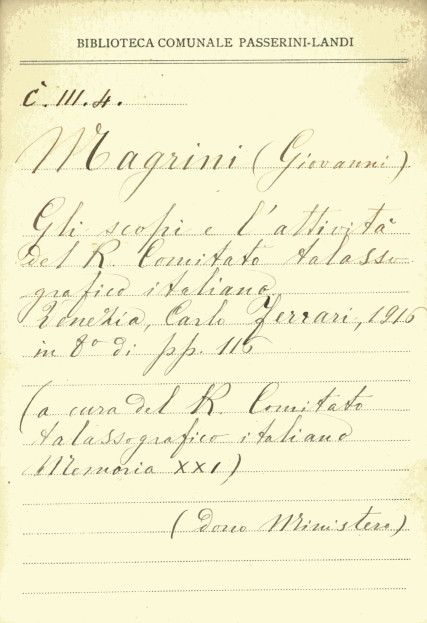 BIBLIOTECA COMUNALE PASSERINI-LANDI
C. III. 4.
Magrini (Giovanni)
Gli scopi e l'attività
del R. Comitato talasso
grafico italiano
Venezia, Carlo Ferrari, 1916
in 8º di pp. 116
(a cura del R. Comitato
talassografico italiano
Memoria XXI)
(dono Ministero)